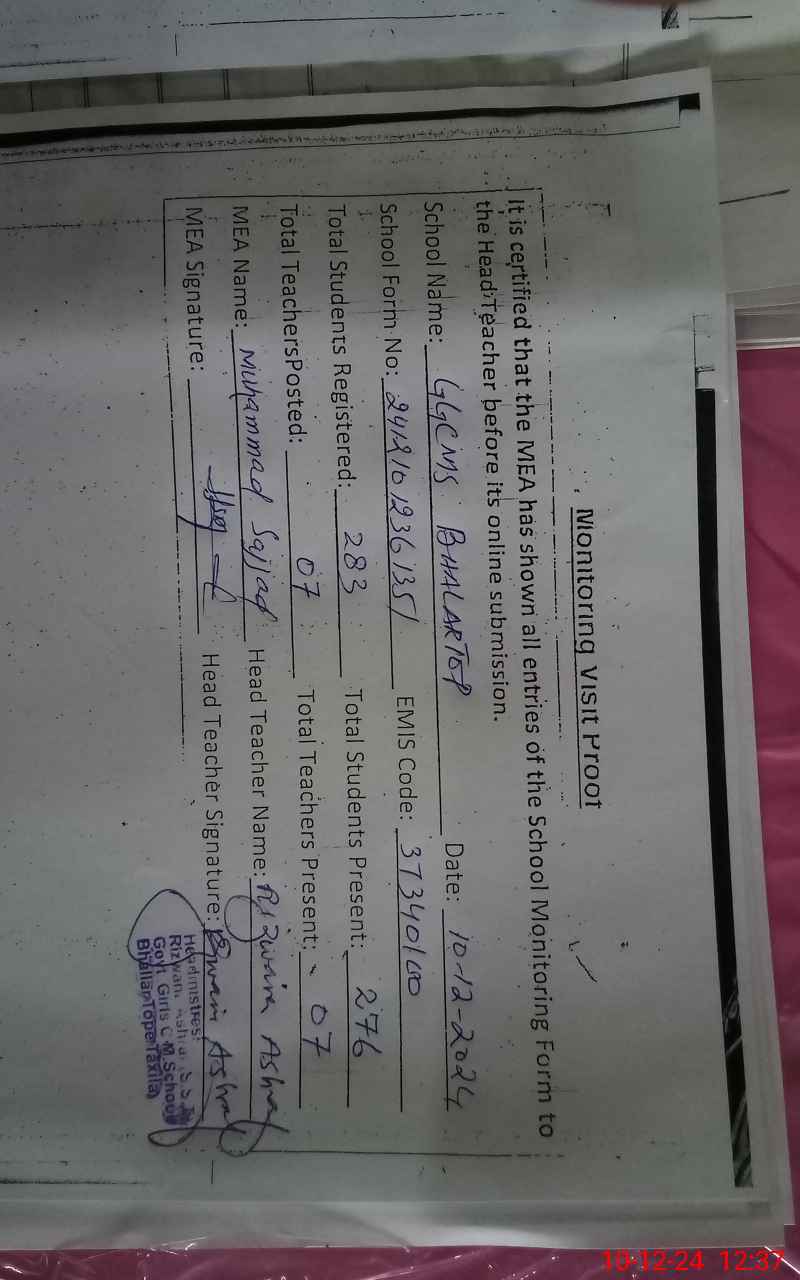 Monitoring Visit Proof
It is certified that the MEA has shown all entries of the School Monitoring Form to
the Head Teacher before its online submission.
School Name: GGCMS BHALARTOP Date: 10-12-2024
School Form No: EMIS Code: 37340100
Total Students Registered: 283 Total Students Present: 276
Total TeachersPosted: 07 Total Teachers Present: 07
MEA Name: Muhammad Sajjad Head Teacher Name: Rizwana Ashraf
MEA Signature: Head Teacher Signature: Ashraf
Headmistres:
Rizwana
Govt Girls C.M.School
Bhallar Tope Taxila
10-12-24 12:37